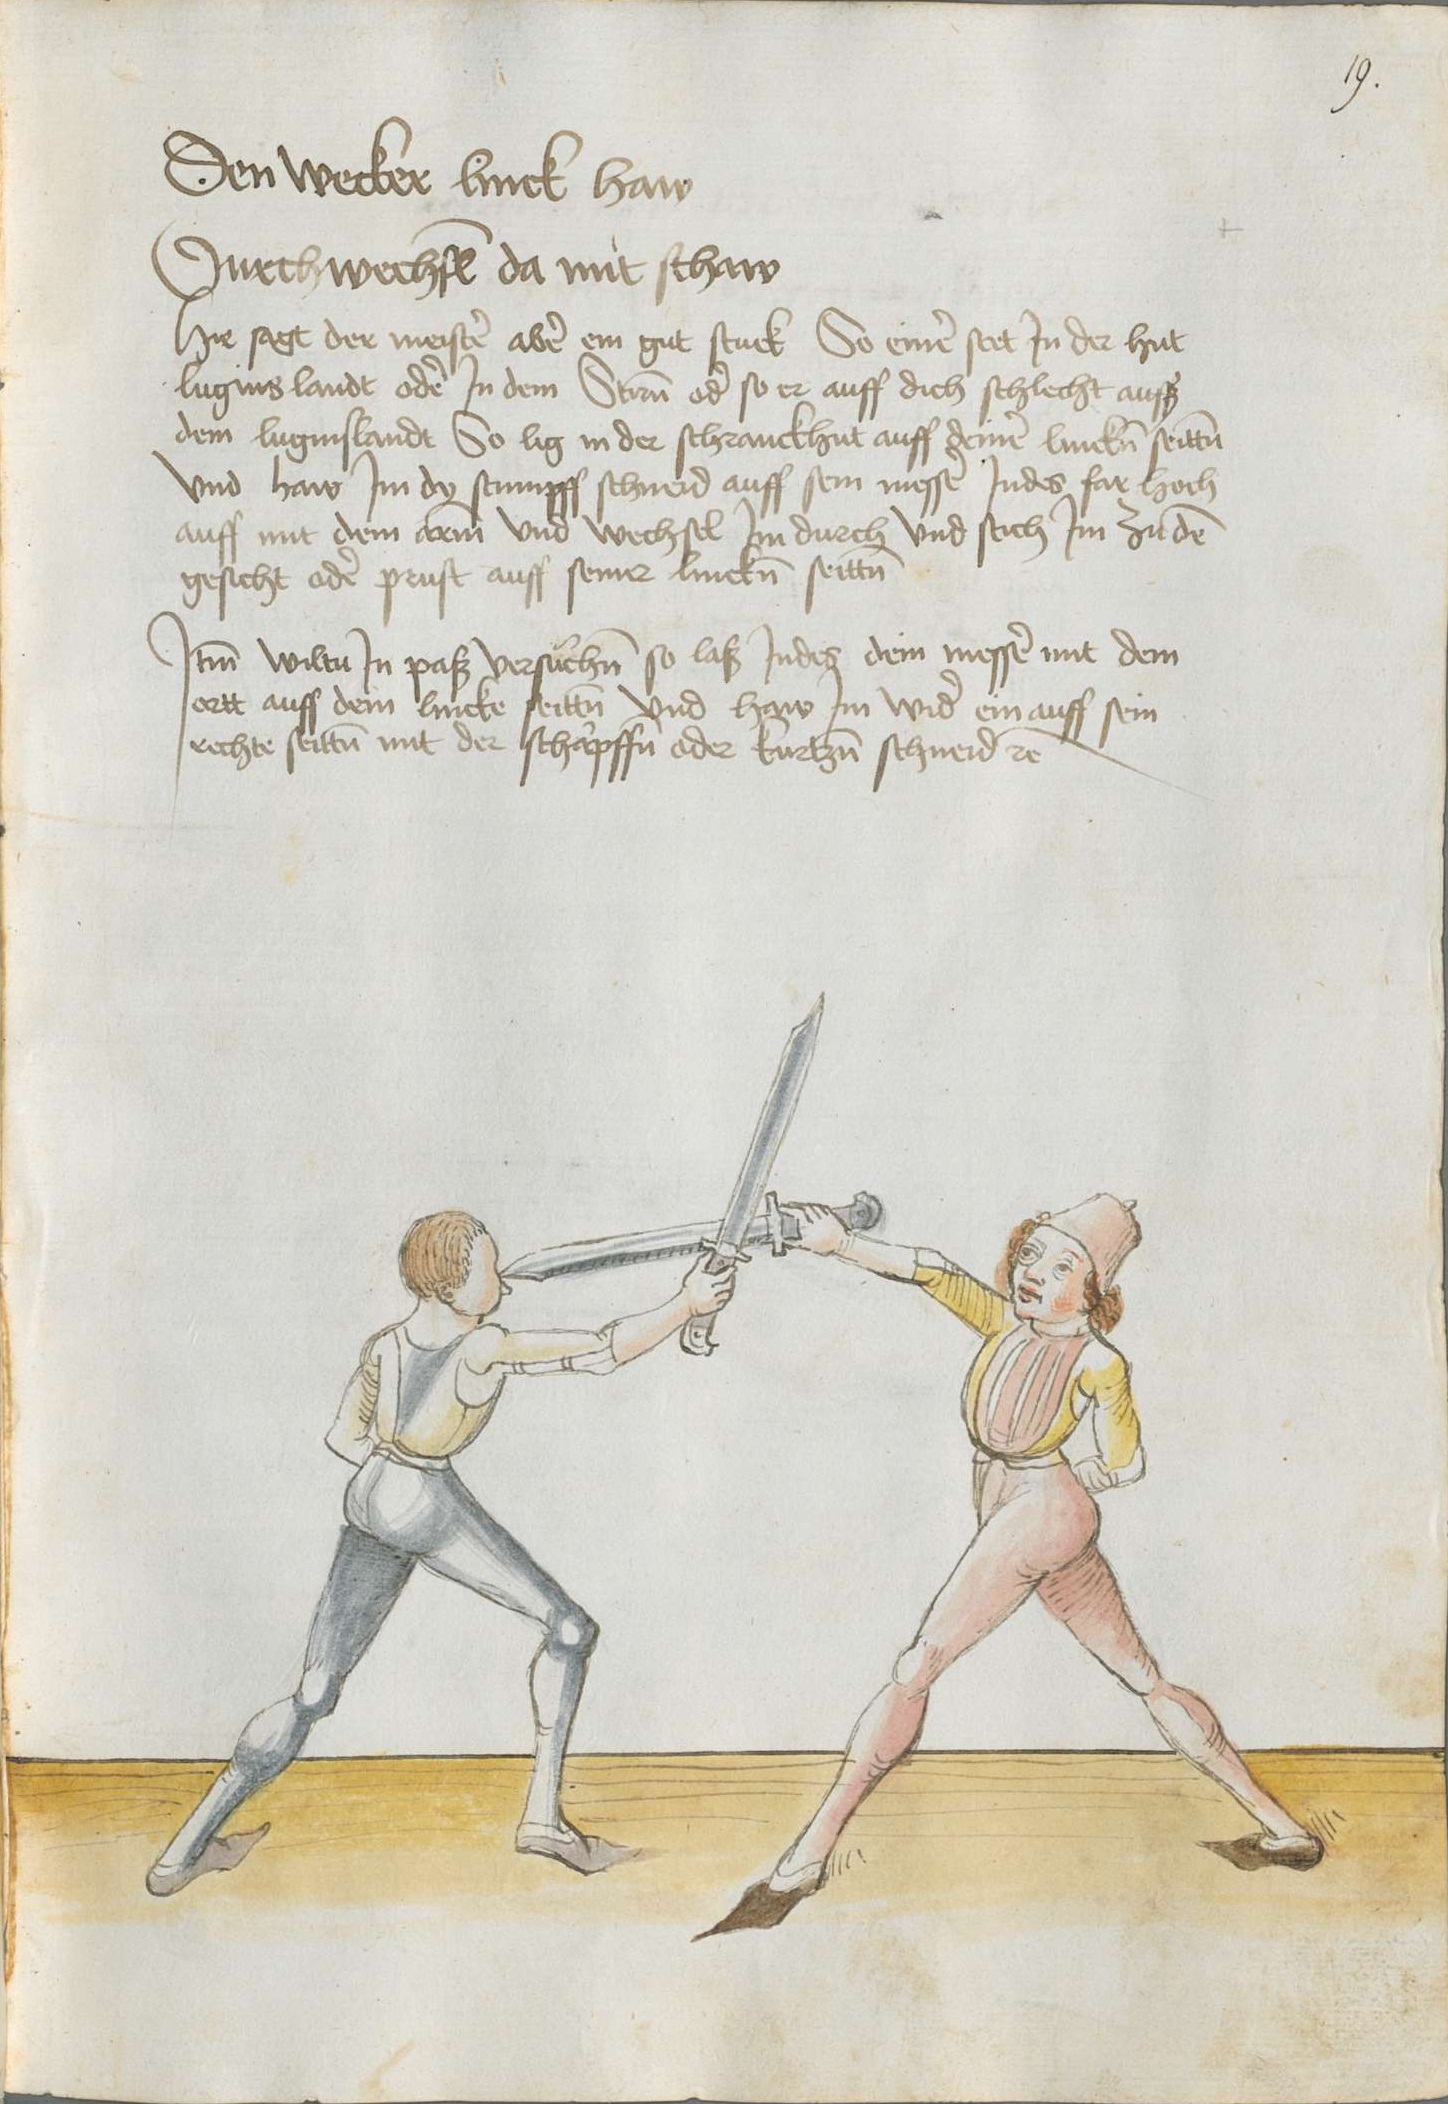 19.
Den wecker linck haw
Durchwechsl̄ da mit schaw
Hie sagt der meiste᷑ abe᷑ ein gut stuck So eine᷑ stet In der hut
luginslandt ode᷑ In dem Stirn̄ od᷑ so er auff dich schlecht auß
dem luginslandt So lig in der schranckhut auff deine᷑ linckn̄ seittn̄
Vnd haw Im dy stumpff schneid auff sein messe᷑ Indes far hoch
auff mit dem arm̄ vnd wechsel Im durch vnd stich Im zu dē
gesicht ode᷑ prust auff seiner linckn̄ seittn̄
Itm̄ wiltu In paß versuchn̄ so laß Indes dein messe᷑ mit dem
ortt auff dein lincke seittn̄ vnd haw Im wid᷑ ein auff sein
rechte seittn̄ mit der schapffn̄ oder kurtzn̄ schneid rē